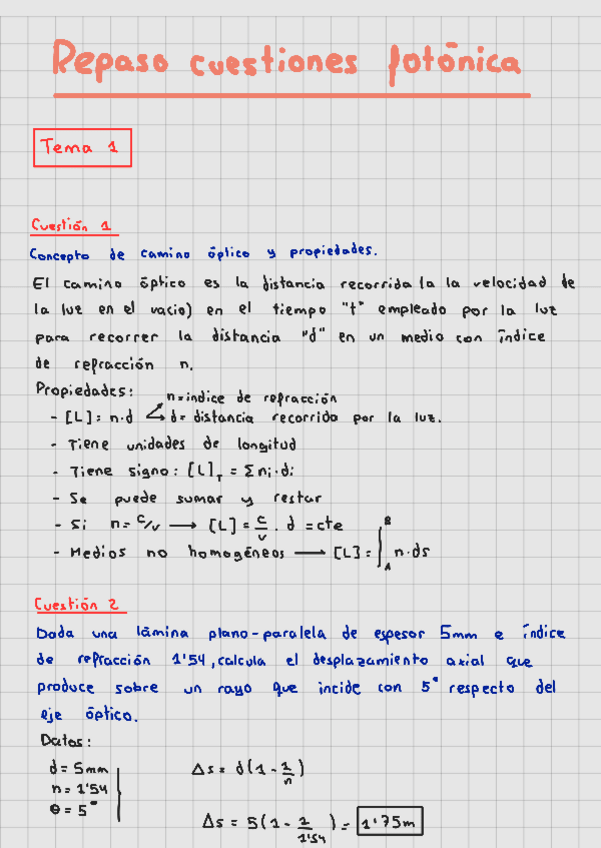 Repaso cuestiones fotónica
Tema 1
Cuestión 1
Concepto de camino óptico y propiedades.
El camino óptico es la distancia recorrida (a la velocidad de
la luz en el vacio) en el tiempo "t" empleado por la luz
para recorrer la distancia "d" en un medio con índice
de refracción n.
Propiedades:
n=indice de refracción
- [L] = n·d
d= distancia recorrido por la luz.
- Tiene unidades de longitud
- Tiene signo: [L]T = Σni·di
- Se puede sumar y restar
- Si n= c/v → [L] = c/v · d = cte
- Medios no homogéneos → [L] = ∫AB n·ds
Cuestión 2
Dada una lámina plano-paralela de espesor 5mm e índice
de refracción 1'54, calcula el desplazamiento axial que
produce sobre un rayo que incide con 5° respecto del
eje óptico.
Datos:
d = 5mm
n = 1'54
θ = 5°
Δs = d(1 - 1/n)
Δs = 5(1 - 1/1'54) = 1'75m